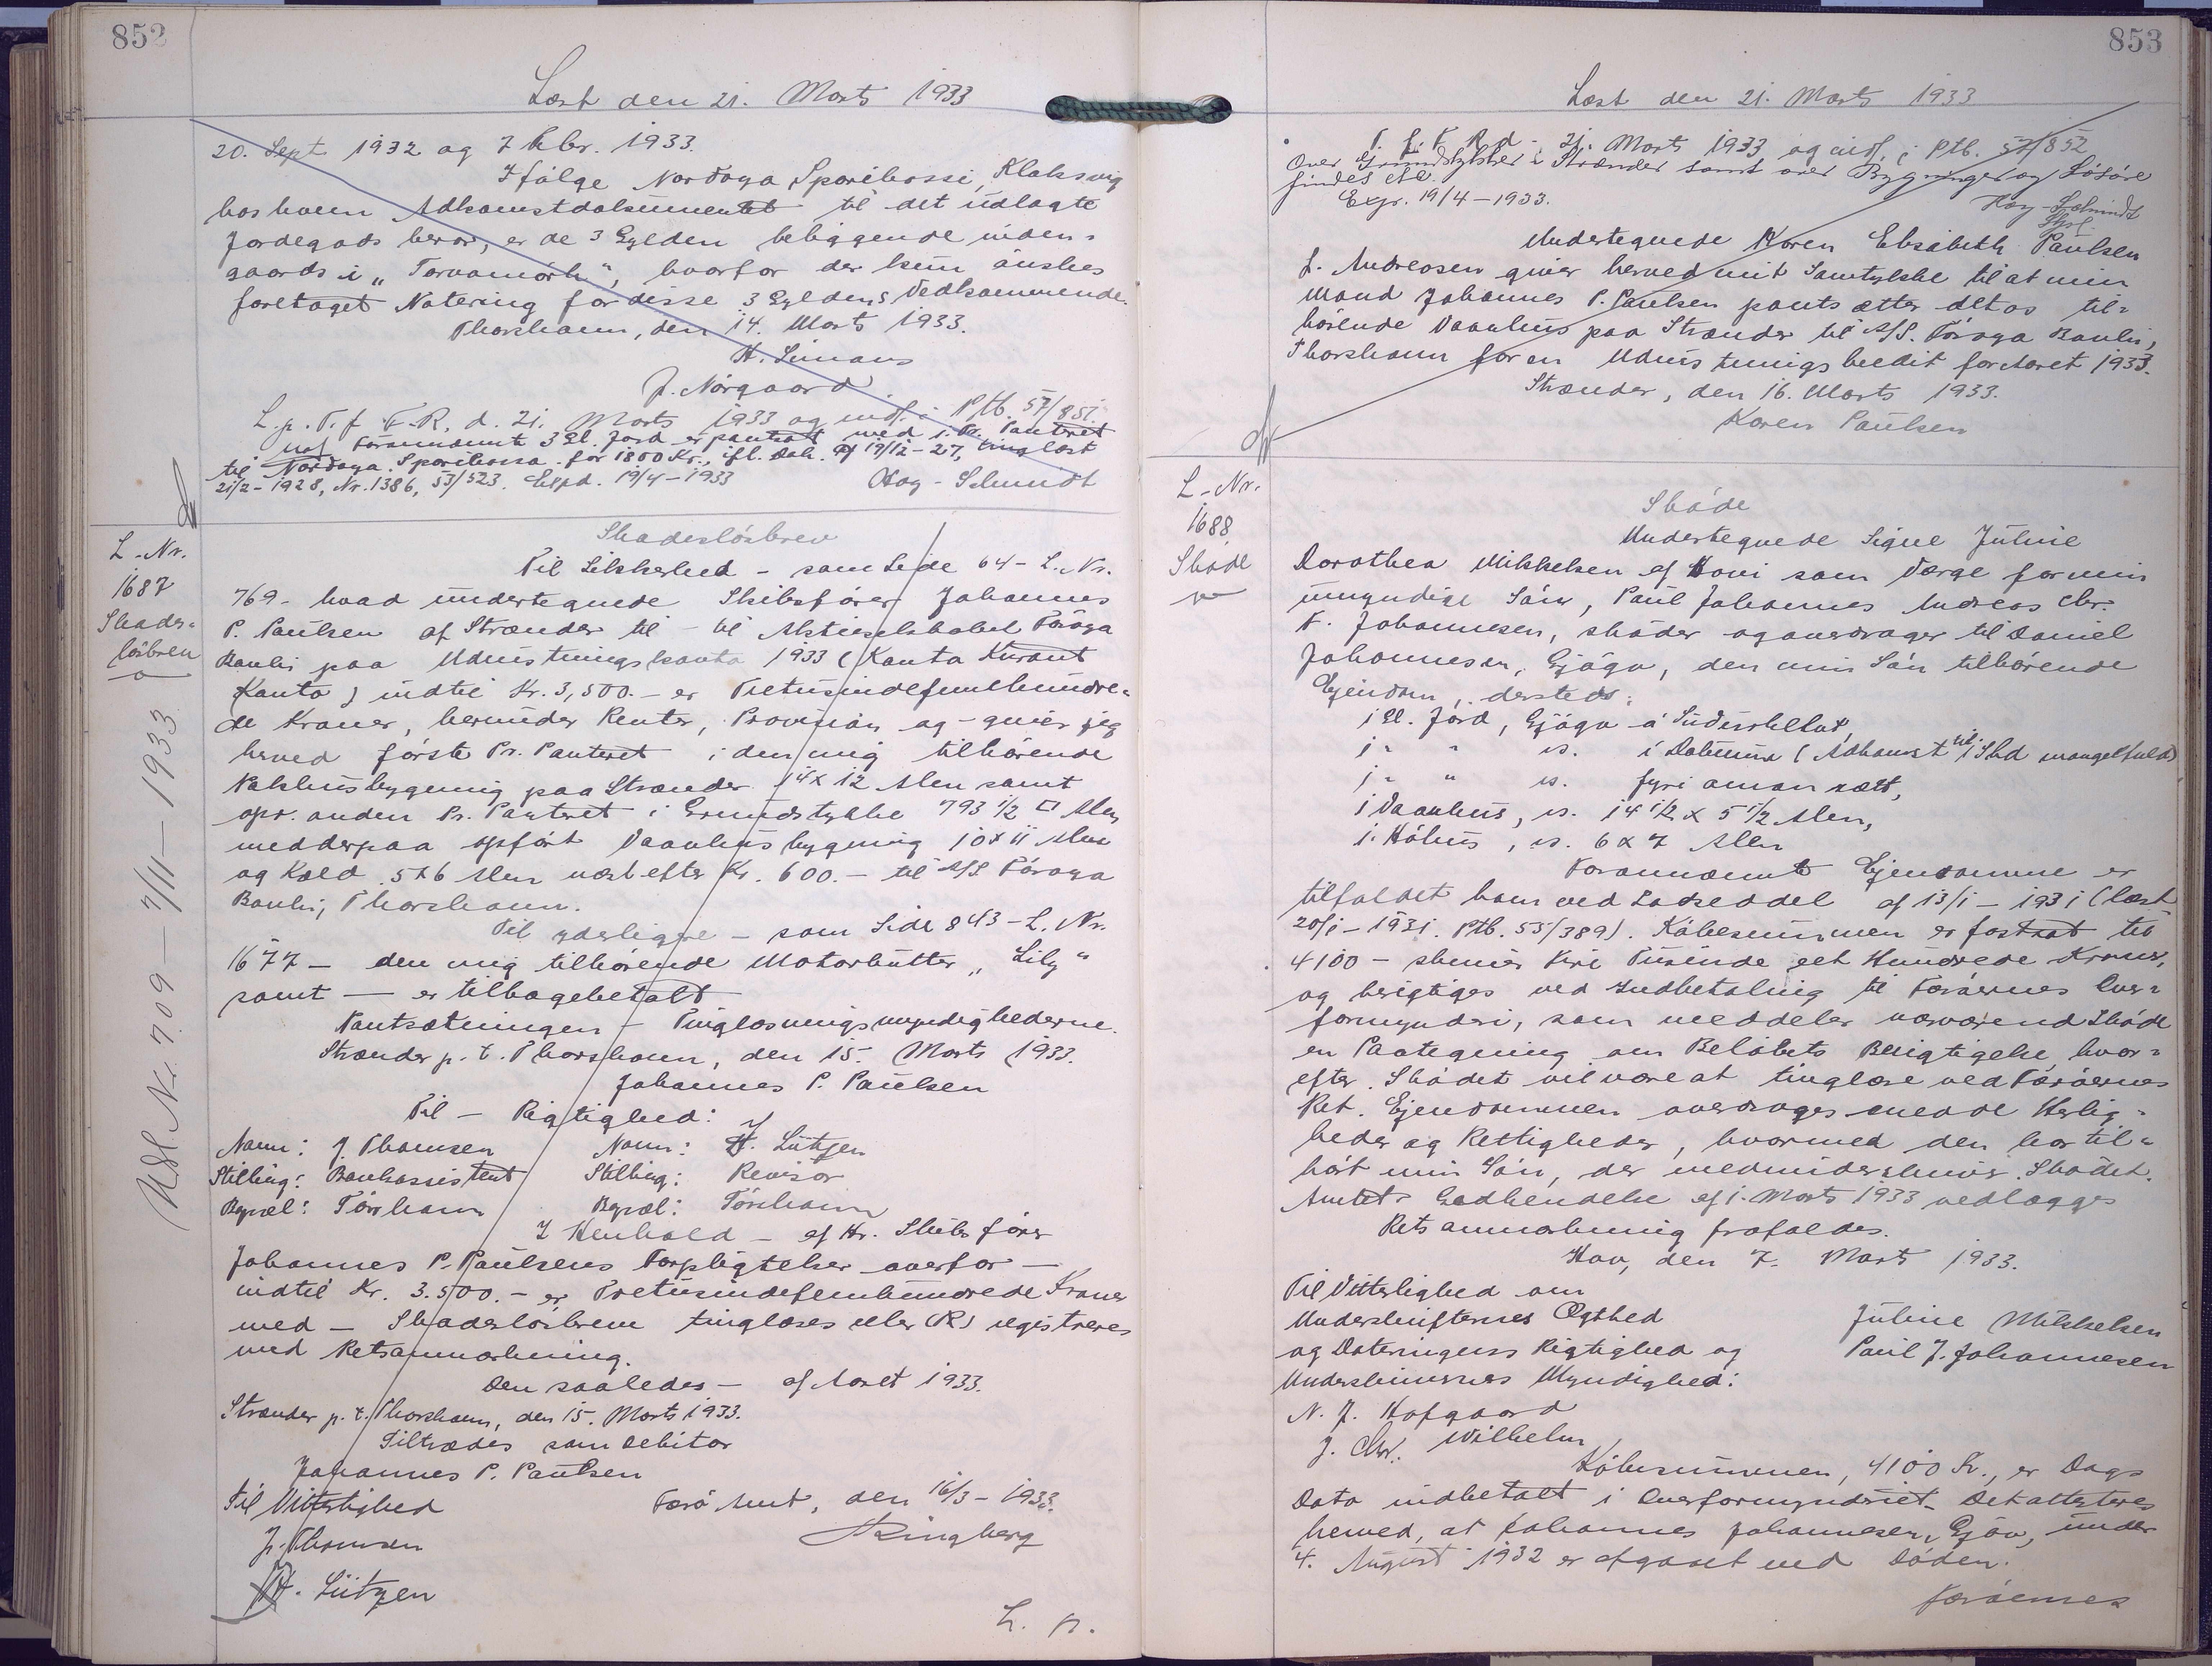 852
Læst den 21. Marts 1933
20. Sept 1932 og 7 Febr. 1933.
Ifølge Nordoya Sparikassi, Klaksvig
hos hvem Adkomstdokumentet til det udlagte
Jordegods beror, er de 3 Gylden beliggende inden-
gaards i „Torvamörk“, hvorfor der kun ønskes
foretaget Notering for disse 3 Gyldens Vedkommende.
Thorshavn, den 14. Marts 1933.
H. Simans
J. Nørgaard
L. p. T. f. F. R. d. 21. Marts 1933 og indf. i Ptb. 57/851
Forannævnte 3 Gl. Jord er pantsat med 1. Pr. Panteret
til Nordoya Sparikassa for 1800 Kr., ifl. Dok. af 19/12-27, tinglæst
21/2-1928, Nr. 1386, 53/523. Expd. 19/4-1933
Høg-Schmidt
L-Nr.
1687
Skades-
løsbrev
Udsl Nr. 709 - 7/11 - 1933
Skadesløsbrev
Til Sikkerhed - som Side 64 - L. Nr.
769 - hvad undertegnede Skibsfører Johannes
P. Paulsen af Strænder til - til Aktieselskabet Föroya
Banki paa Udrustningskonto 1933 (Konto Kurant
Konto) indtil Kr. 3,500.- er Tretusindefemhundre-
de Kroner, herunder Renter, Provision og - giver jeg
herved første Pr. Panteret i den mig tilhørende
Pakhusbygning paa Strænder 14 x 12 Alen samt
opr. anden Pr. Panteret i Grundstykke 793 1/2 □ Alen
med derpaa opført Vaanhusbygning 10 x 11 Alen
og Kæld 5x6 Alen næst efter Kr. 600.- til A/S Föroya
Banki, Thorshavn.
Til yderligere - som Side 843 - L. Nr.
1677 - den mig tilhørende Motorkutter „Lily“
samt — er tilbagebetalt
Pantsætningen - Tinglæsningsmyndighederne.
Strænder p. t. Thorshavn, den 15. Marts 1933.
Johannes P. Paulsen
Til - Rigtighed:
Navn: J. Thomsen Navn: H. Lützen
Stilling: Bankassistent Stilling: Revisor
Bopæl: Tórshavn Bopæl: Tórshavn
I Henhold - af Hr. Skibsfører
Johannes P. Paulsens Forpligtelser overfor —
indtil Kr. 3.500.- er Tretusindefemhundrede Kroner
med - Skadesløsbrev tinglæses eller (R) registreres
med Retsanmærkning.
Den saaledes - af Aaret 1933.
Strænder p. t. Thorshavn, den 15. Marts 1933.
Tiltrædes som Debitor
Johannes P. Paulsen
Til Vitterlighed Færø Amt, den 16/3 - 1933.
J. Thomsen Ringberg
H. Lützen
L. p.
853
Læst den 21. Marts 1933
T. f. F. R. d. 21. Marts 1933 og indf. i Ptb. 57/852
Over Grundstykket i Strænder samt over Bygninger og Løsøre
findes
Expr. 19/4-1933.
Høg-Schmidt
Undertegnede Karen Elisabeth Paulsen
f. Andreasen giver herved mit Samtykke til at min
Mand Johannes P. Paulsen pantsætter det os til-
hørende Vaanhus paa Strænder til A/S. Föroya Banki,
Thorshavn for en Udrustningskredit for Aaret 1933.
Strænder, den 16. Marts 1933.
Karen Paulsen
L-Nr.
1688
Skøde
Skøde
Undertegnede Signe Juline
Dorothea Mikkelsen af Hovi som Værge for min
umyndige Søn, Paul Johannes Andreas Chr.
F. Johannesen, skøder og overdrager til Daniel
Johannesen, Gjógv, den min Søn tilhørende
Ejendom, dersteds:
1 Gl. Jord, Gjógv á Sudurhellut,
1 " " is. í Dalinum (Adkomst til 1 Skd mangelfuld)
1 " " is. fyri oman rætt,
1 Vaanhus, is. 14 1/2 x 5 1/2 Alen,
1. Hóhus, is. 6 x 7 Alen
Forannævnte Ejendomme er
tilfaldet ham ved Lodseddel af 13/1 - 1931 (læst
20/1-1931. Ptb. 55/389). Købesummen er fastsat til
4100 - skriver Fire Tusinde eet Hundrede Kroner,
og berigtiges ved Indbetaling til Færøernes Over-
formynderi, som meddeler nærværend Skøde
en Paategning om Beløbets Berigtigelse, hvor-
efter Skødet vil være at tinglæse ved Færøernes
Ret. Ejendommen overdrages med de Herlig-
heder og Rettigheder, hvormed den har til-
hørt min Søn, der medunderskriver Skødet.
Amtets Godkendelse af 1. Marts 1933 vedlægges
Retsanmærkning frafaldes.
Hov, den 7. Marts 1933.
Til Vitterlighed om
Underskrifternes Ægthed Juline Mikkelsen
og Dateringens Rigtighed og Paul J. Johannesen
Underskrivernes Myndighed:
N. J. Hofgaard
J. Chr. Wilhelm
Købesummen, 4100 Kr., er Dags
Dato indbetalt i Overformynderiet. Det attesteres
herved, at Johannes Johannesen, Gjov, under
4. August 1932 er afgaaet ved Døden.
Færøernes